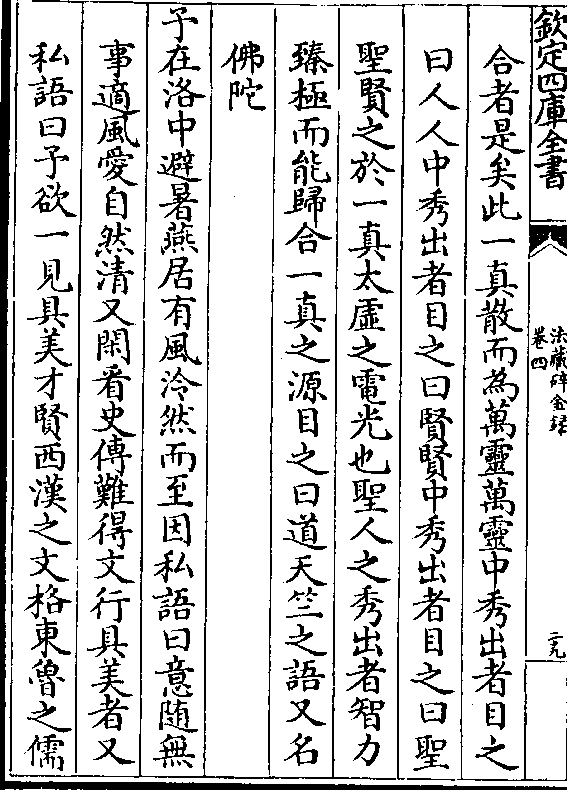 欽定四庫全書
法藏碎金錄
卷四
二九
合者是矣此一真散而為萬靈萬靈中秀出者目之
曰人人中秀出者目之曰賢賢中秀出者目之曰聖
聖賢之於一真太虛之電光也聖人之秀出者智力
臻極而能歸合一真之源目之曰道天竺之語又名
佛陀
予在洛中避暑燕居有風泠然而至因私語曰意隨無
事適風愛自然清又閑看史傳難得文行具美者又
私語曰予欲一見具美才賢西漢之文格東魯之儒